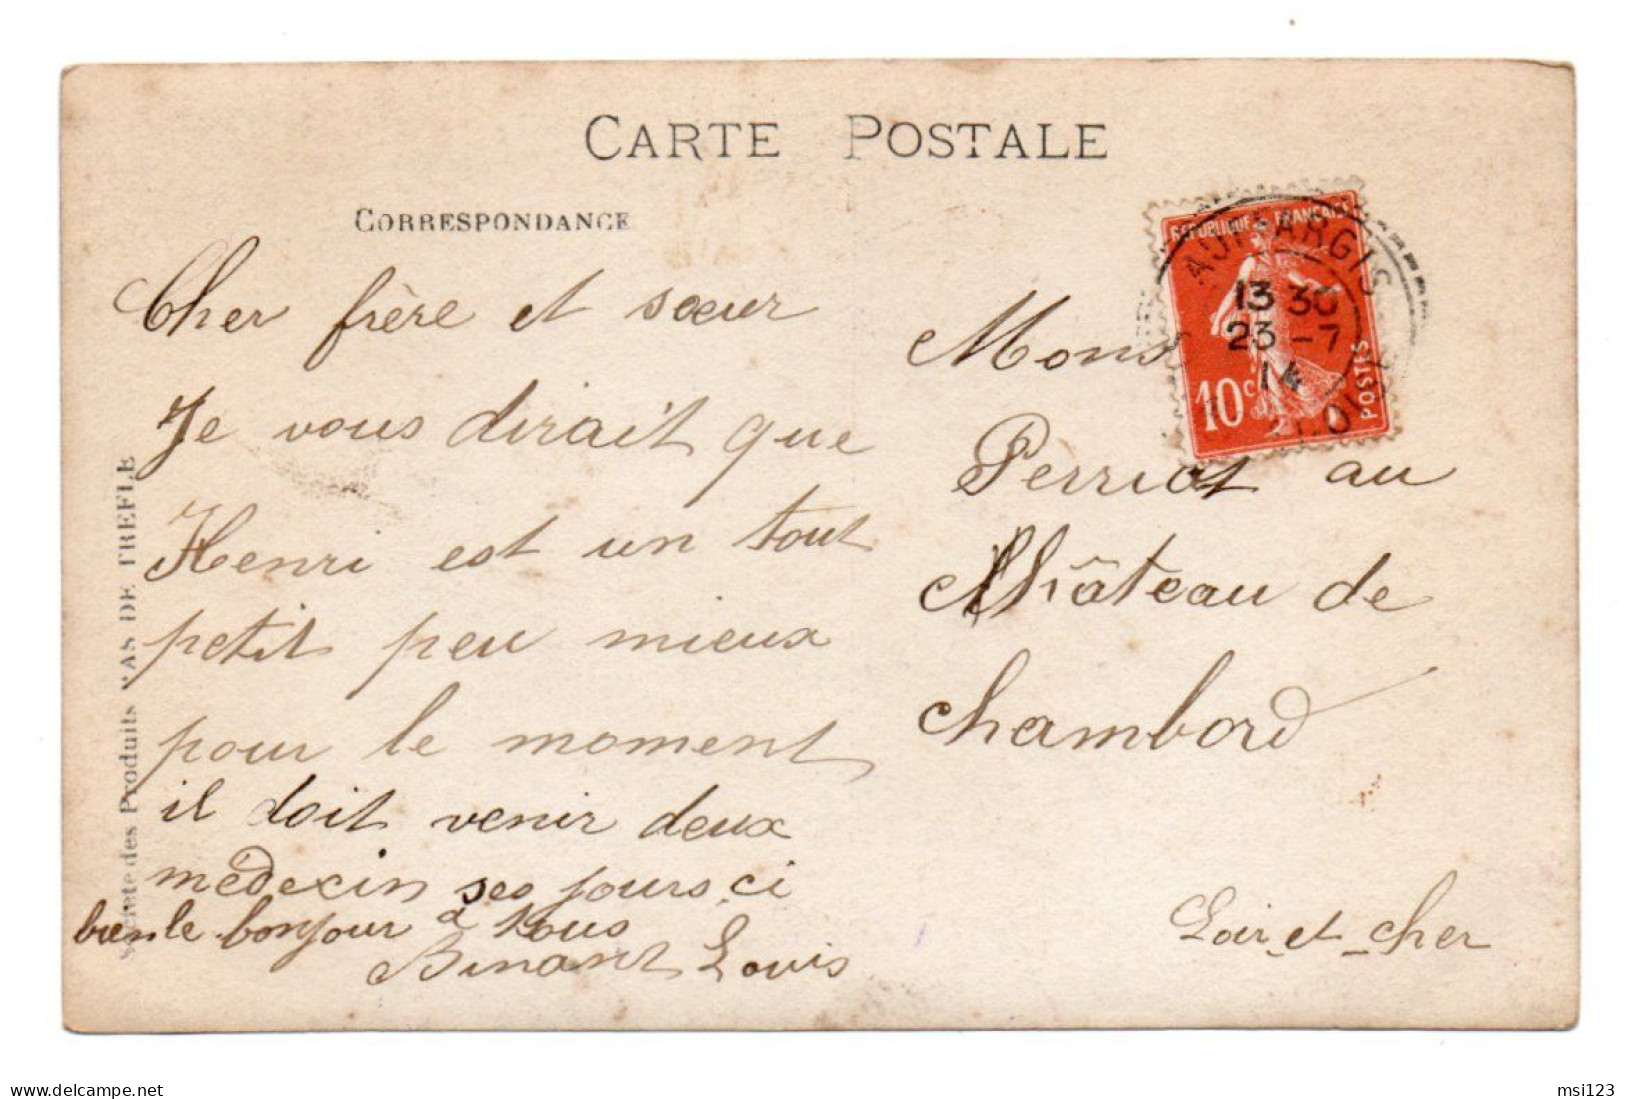 CARTE POSTALE
CORRESPONDANCE
Cher frère et sœur
Je vous dirait que
Henri est un tout
petit peu mieux
pour le moment
il doit venir deux
médecin ses jours ci
bien le bonjour à tous
Binant Louis
Société des Produits "AS DE TREFLE
REPUBLIQUE FRANÇAISE
10c POSTES
AUFFARGIS
13 30
23 -7
14
Mons
Perriot au
Château de
Chambord
Loir-et-cher
www.delcampe.net
msi123